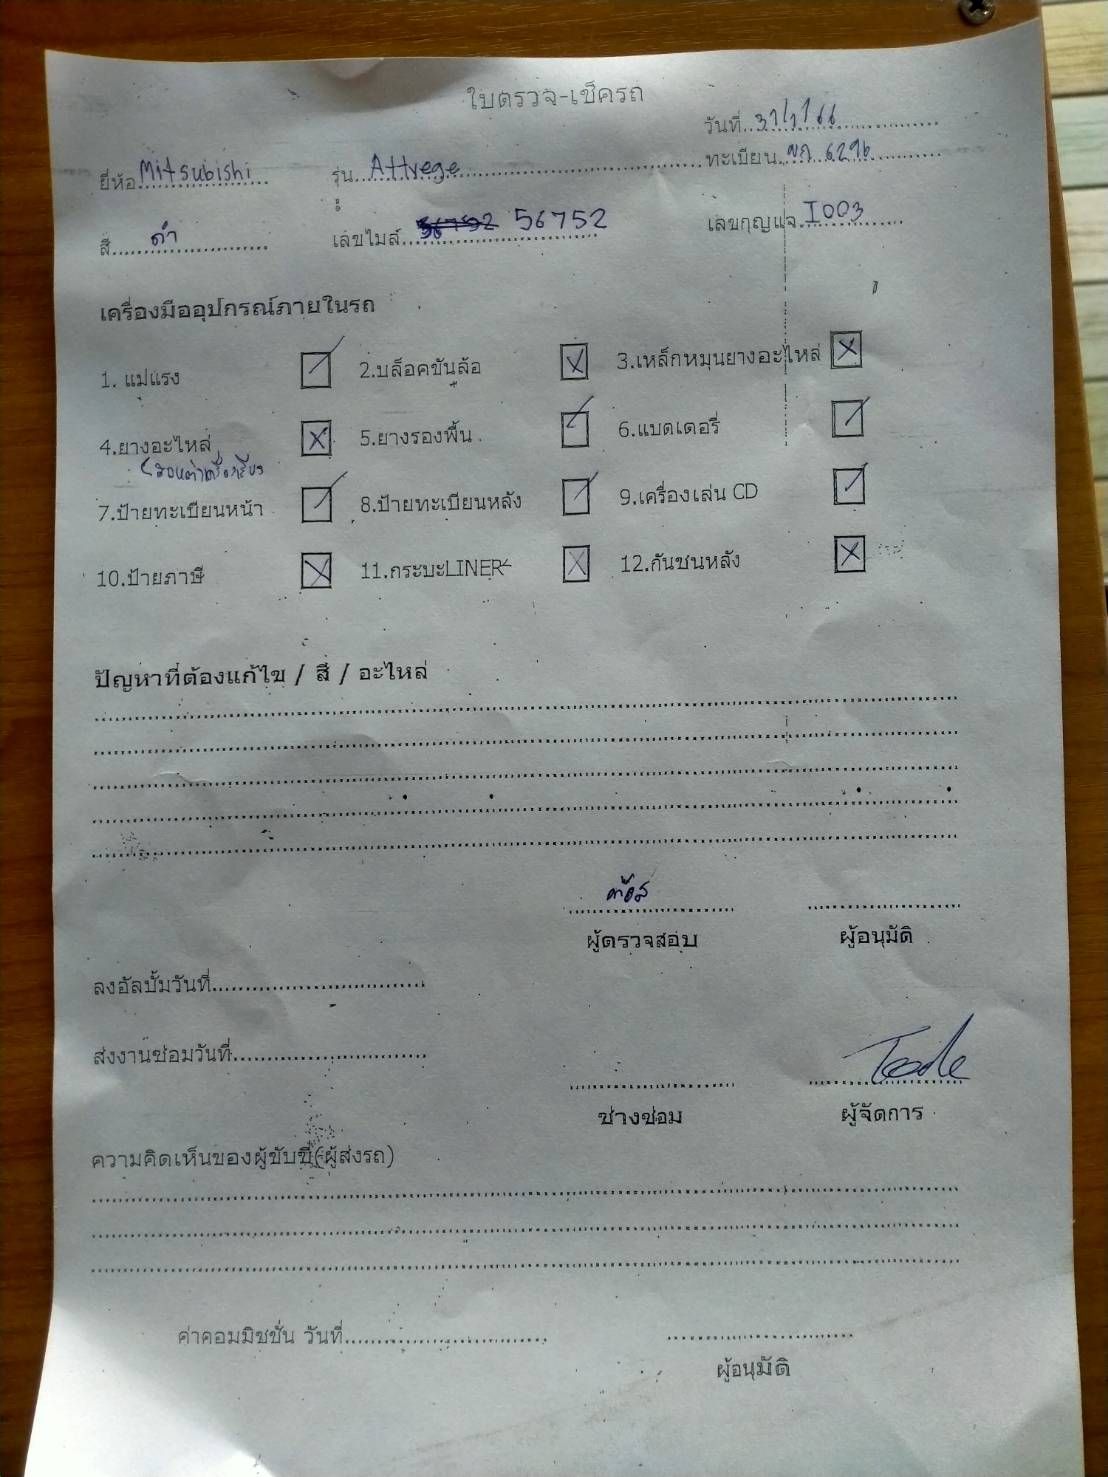 ใบตรวจ-เช็ครถ
วันที่
ยี่ห้อ Mitsubishi รุ่น Attrege ทะเบียน 6296
สี ดำ เลขไมล์ 56752 เลขกุญแจ I003
เครื่องมืออุปกรณ์ภายในรถ
1. แม่แรง 2.บล็อคขันล้อ 3.เหล็กหมุนยางอะไหล่
4.ยางอะไหล่ 5.ยางรองพื้น 6.แบตเตอรี่
7.ป้ายทะเบียนหน้า 8.ป้ายทะเบียนหลัง 9.เครื่องเล่น CD
10.ป้ายภาษี 11.กระบะLINER 12.กันชนหลัง
ปัญหาที่ต้องแก้ไข / สี / อะไหล่
ผู้ตรวจสอบ ผู้อนุมัติ
ลงอัลบั้มวันที่
ส่งงานซ่อมวันที่
ช่างซ่อม ผู้จัดการ
ความคิดเห็นของผู้ขับขี่(ผู้ส่งรถ)
ค่าคอมมิชชั่น วันที่
ผู้อนุมัติ